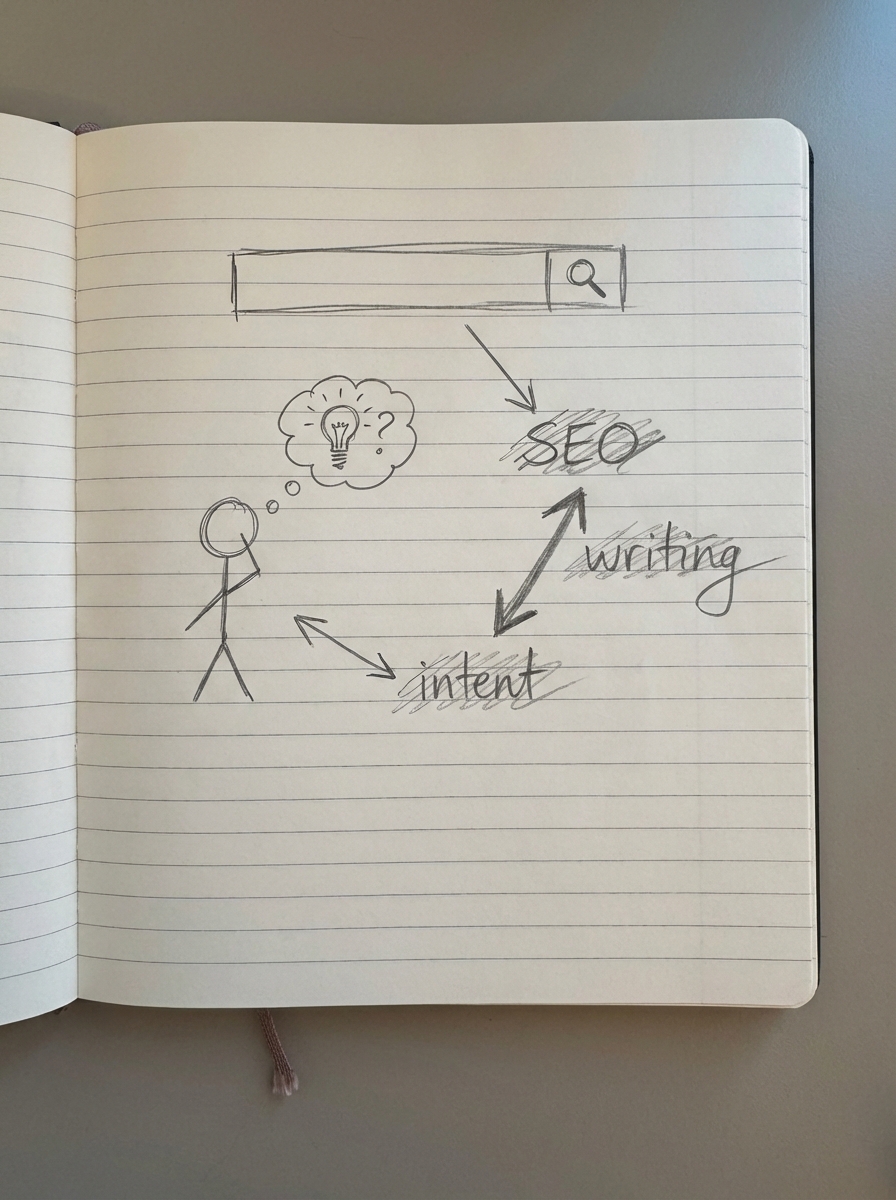 ?
SEO
writing
intent